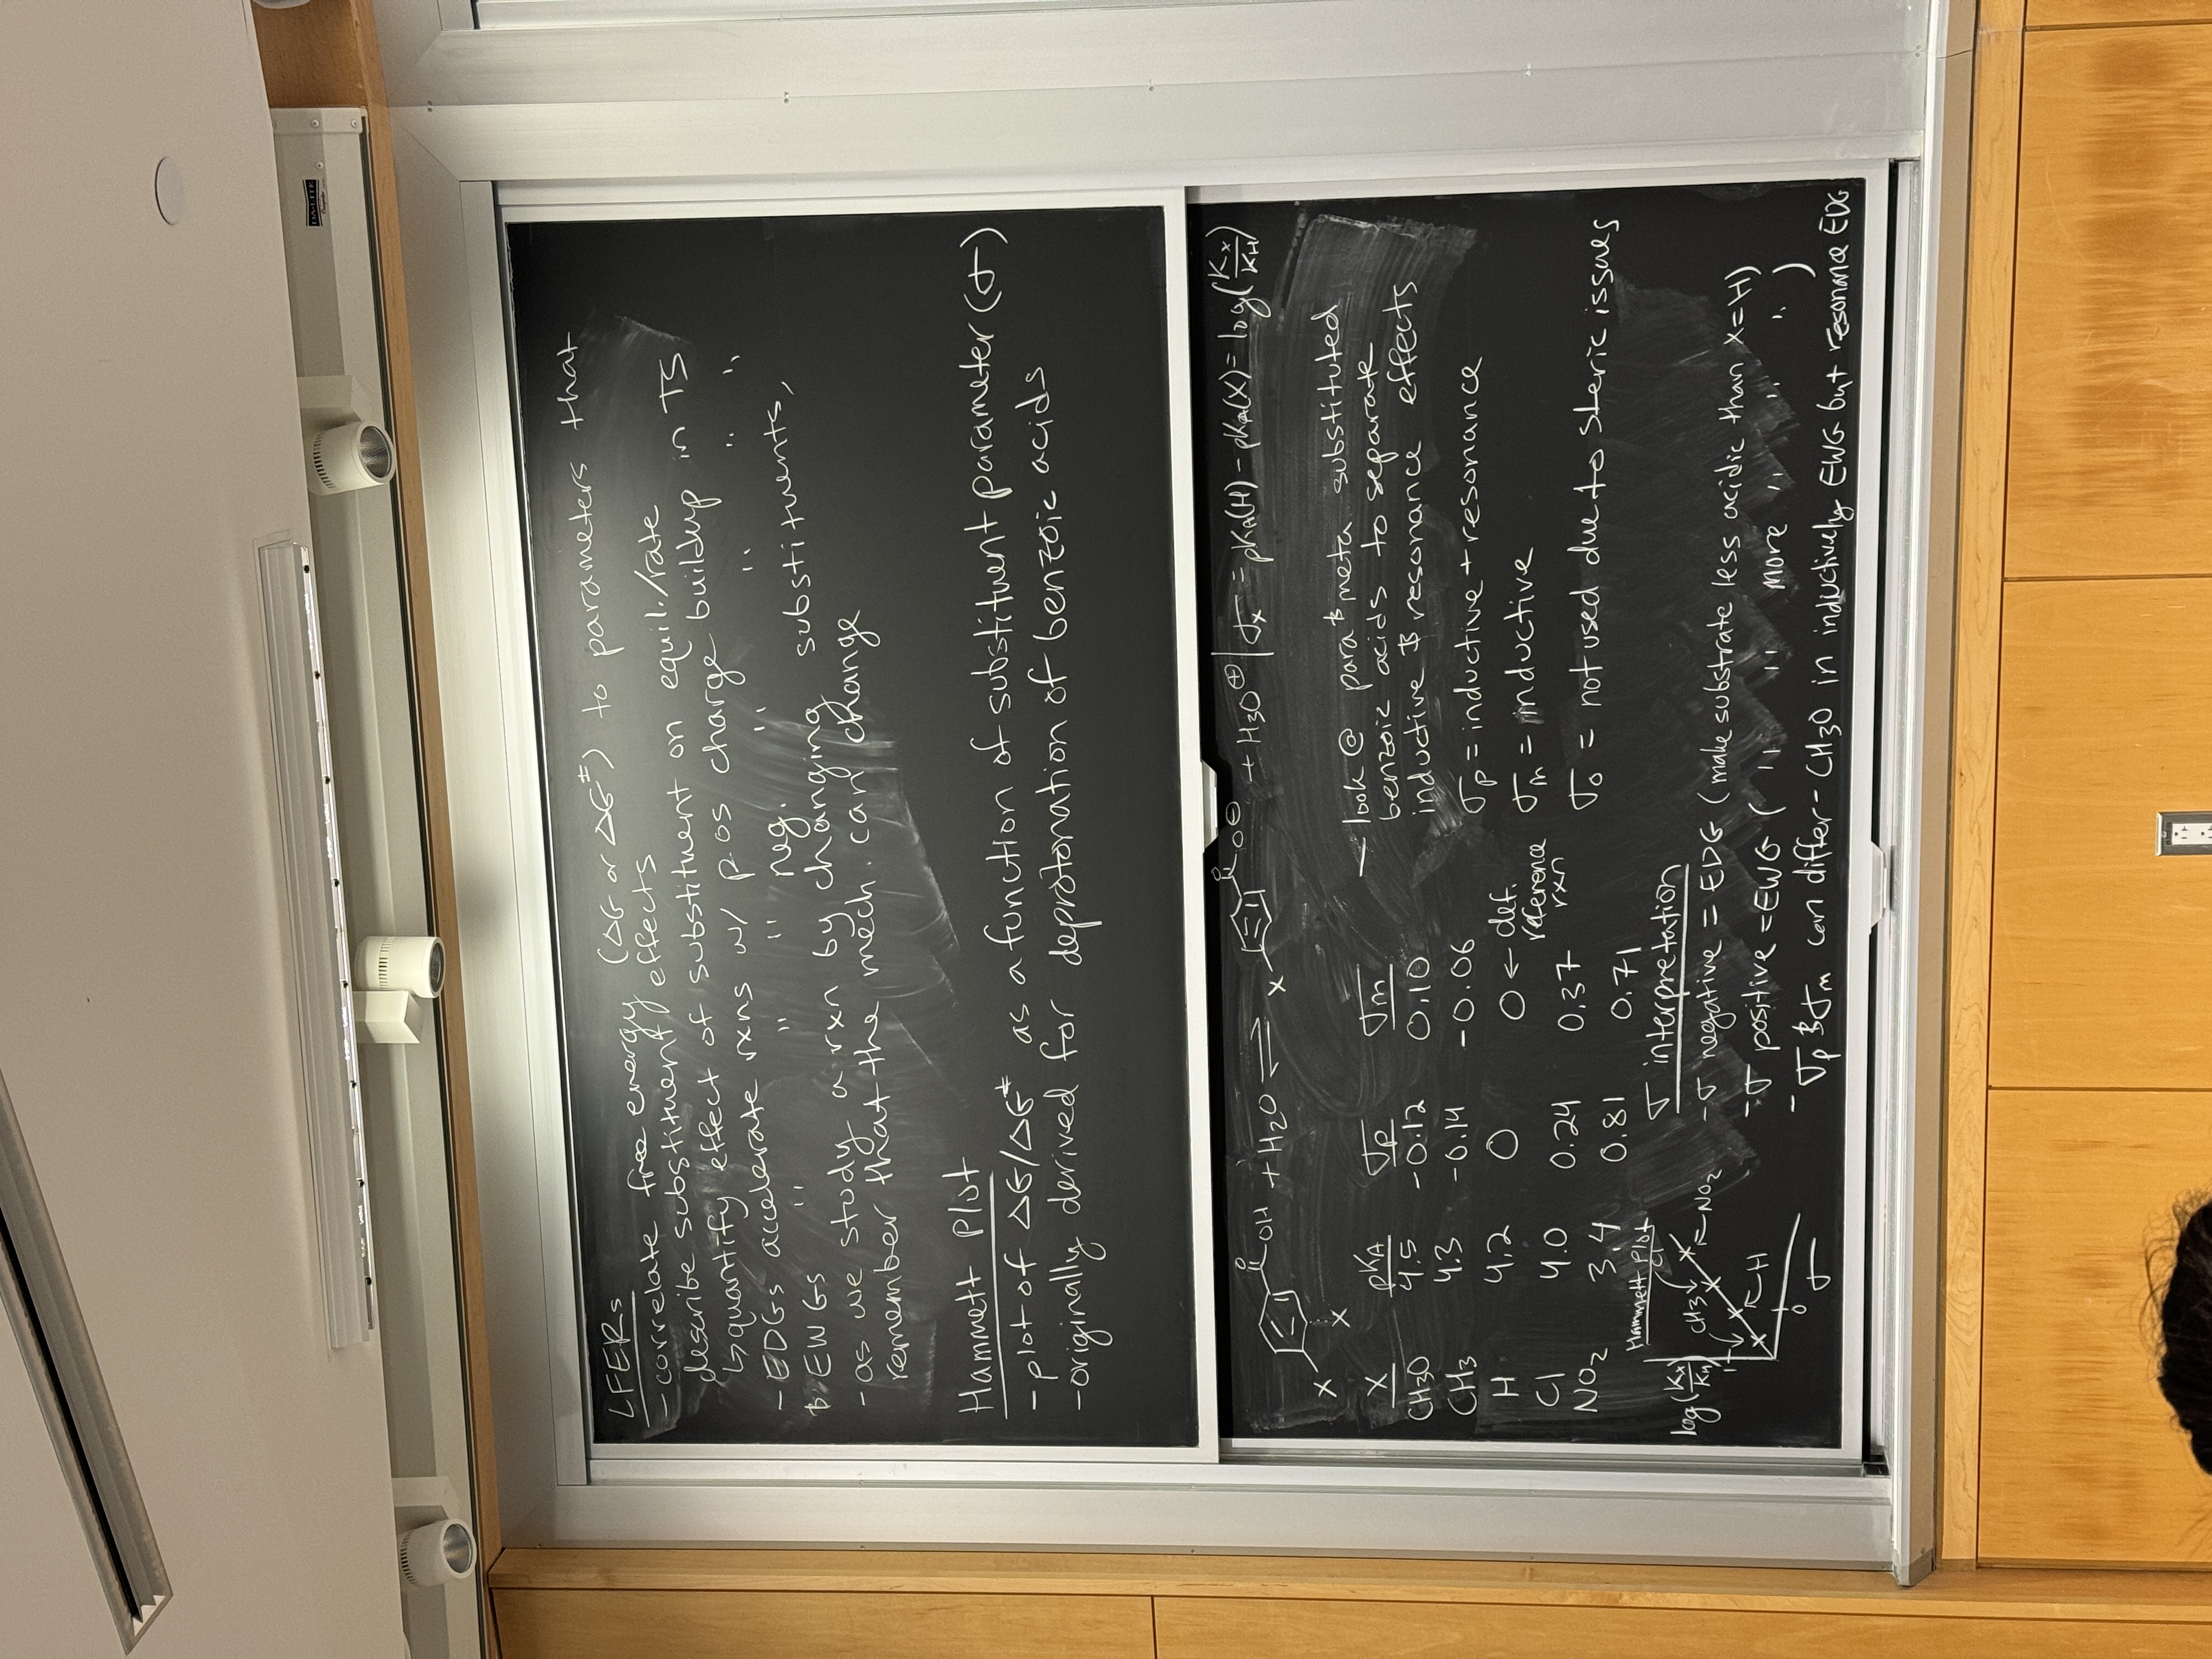 DA-LITE
LFERs
- correlate free energy (ΔG or ΔG‡) to parameters that
describe substituent effects
↳ quantify effect of substituent on equil./rate
- EDGs accelerate rxns w/ pos charge buildup in TS
& EWGs " " " neg. " " " "
- as we study a rxn by changing substituents,
remember that the mech. can change
Hammett Plot
- plot of ΔG/ΔG‡ as a function of substituent parameter (σ)
- originally derived for deprotonation of benzoic acids
O OH + H2O ⇌ O O⊖ + H3O⊕ | σx = pKA(H) - pKA(X) = log(Kx/KH)
X X X
X pKA σp σm
CH3O 4.5 -0.12 0.10
CH3 4.3 -0.14 -0.06
H 4.2 0 0 ← def. reference rxn
Cl 4.0 0.24 0.37
NO2 3.4 0.81 0.71
- look @ para & meta substituted
benzoic acids to separate
inductive & resonance effects
σp = inductive + resonance
σm = inductive
σo = not used due to steric issues
Hammett Plot
log(Kx/KH)
Cl
CH3
NO2
1
H
0
σ
σ interpretation
- σ negative = EDG (make substrate less acidic than X=H)
- σ positive = EWG ( " " more " " " )
- σp & σm can differ - CH3O in inductively EWG but resonance EDG